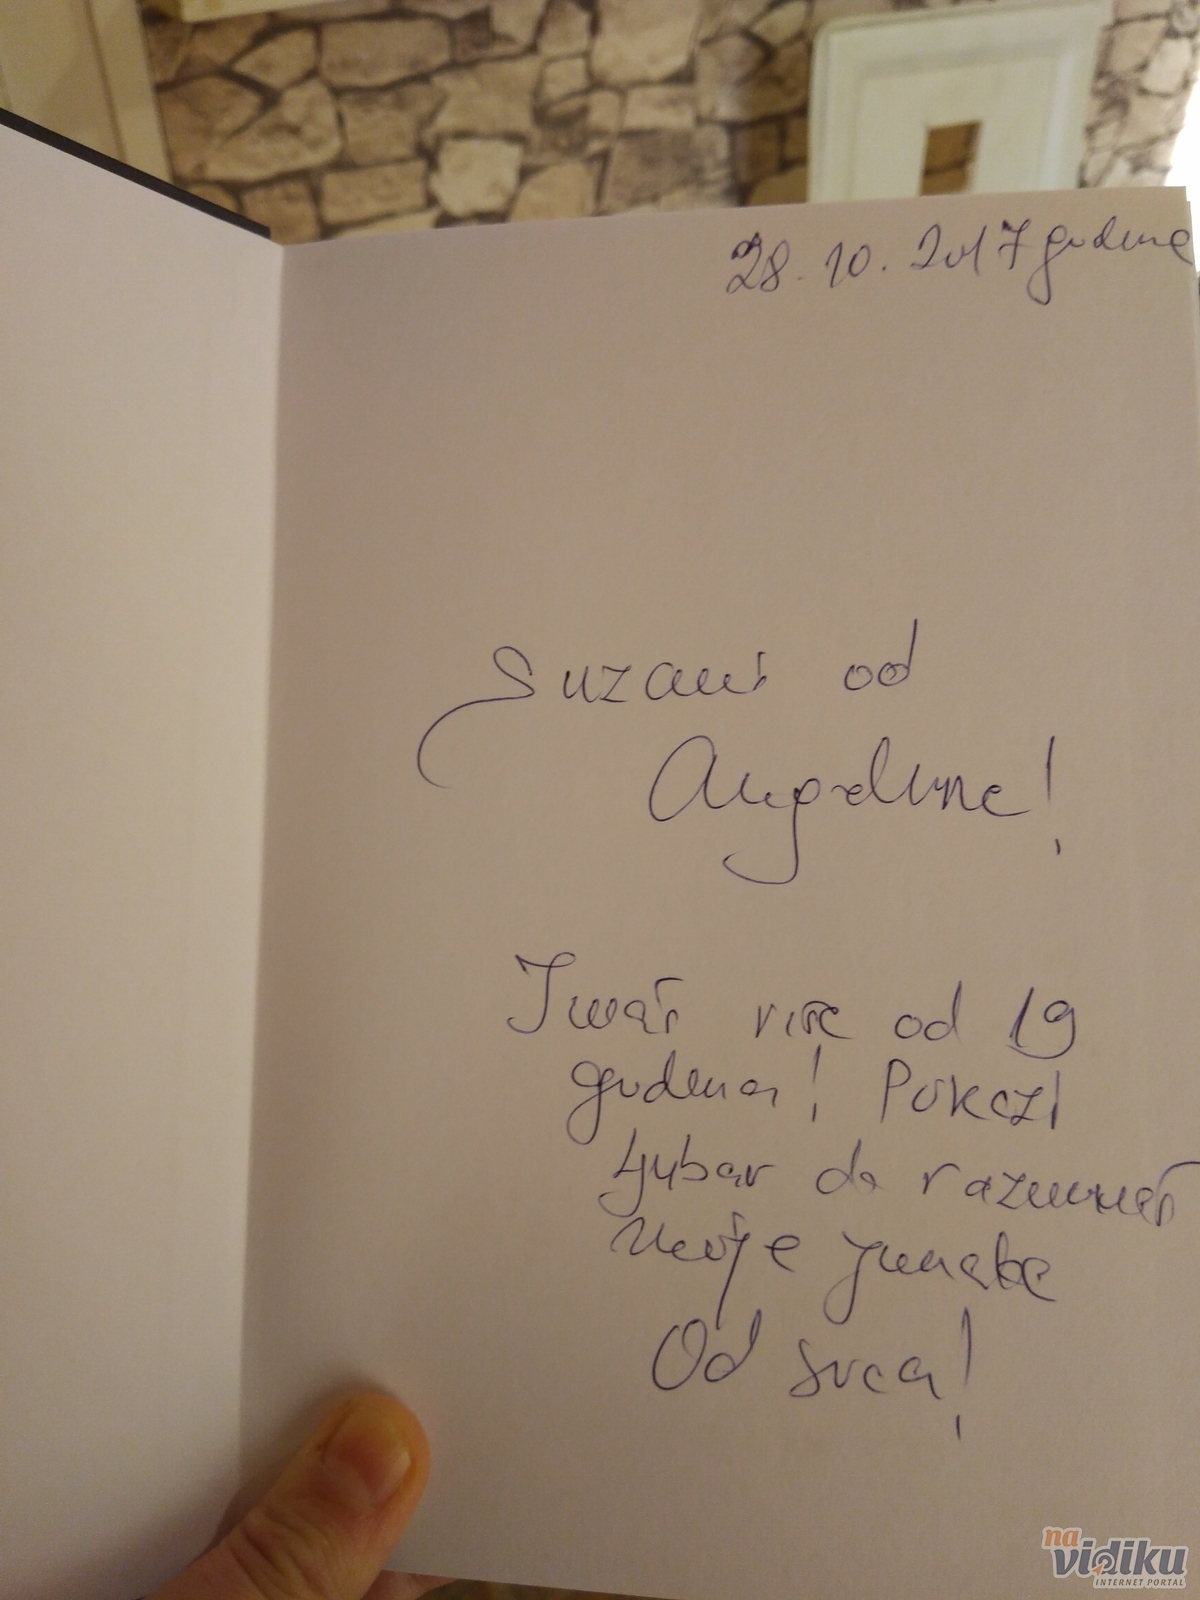 28. 10. 2017 godine
Suzani od
Angeline!
Imaš više od 19
godina! Pokaži
ljubav da razumeš
moje junake
Od srca!
na
vidiku
INTERNET PORTAL